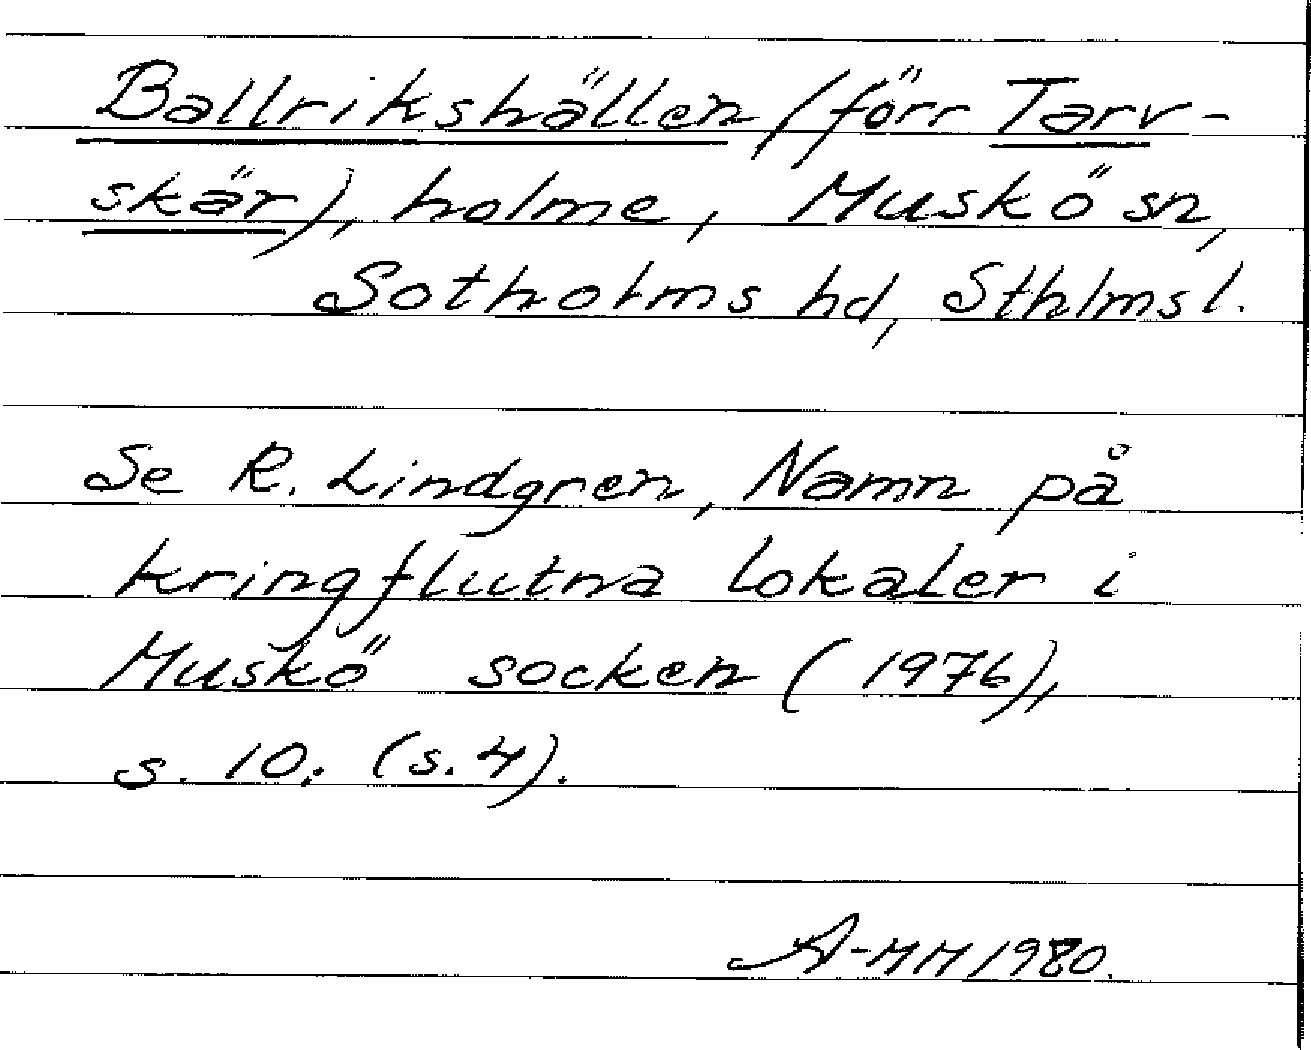 Ballrikshällen (förr Tarv-
skär), holme, Muskö sn,
Sotholms hd, Sthlmsl.
Se R. Lindgren, Namn på
kringflutna lokaler i
Muskö socken (1976),
s. 10. (s. 4).
A-MM 1980.